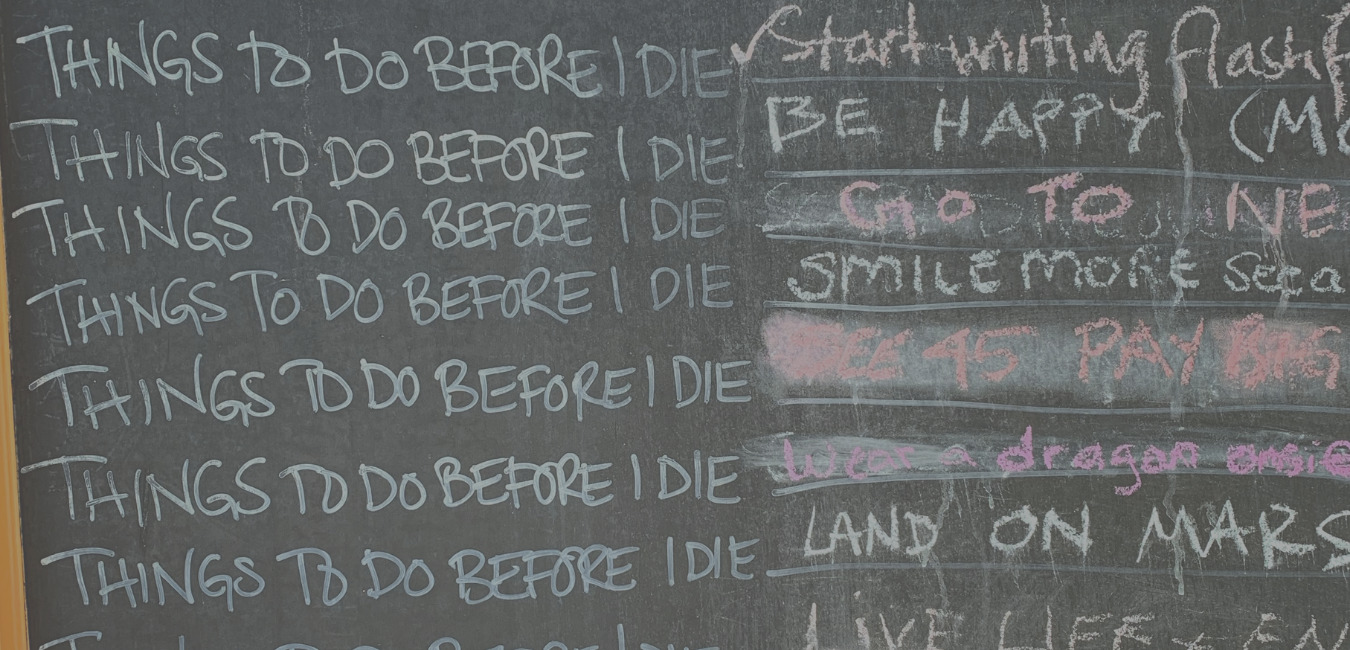 THINGS TO DO BEFORE I DIE ✓Start writing flashf
THINGS TO DO BEFORE I DIE BE HAPPY (MO
THINGS TO DO BEFORE I DIE GO TO NE
THINGS TO DO BEFORE I DIE SMILE MORE
THINGS TO DO BEFORE I DIE SEE 45 PAY BIG
THINGS TO DO BEFORE I DIE Wear a dragon onsie
THINGS TO DO BEFORE I DIE LAND ON MARS
LIVE LIFE